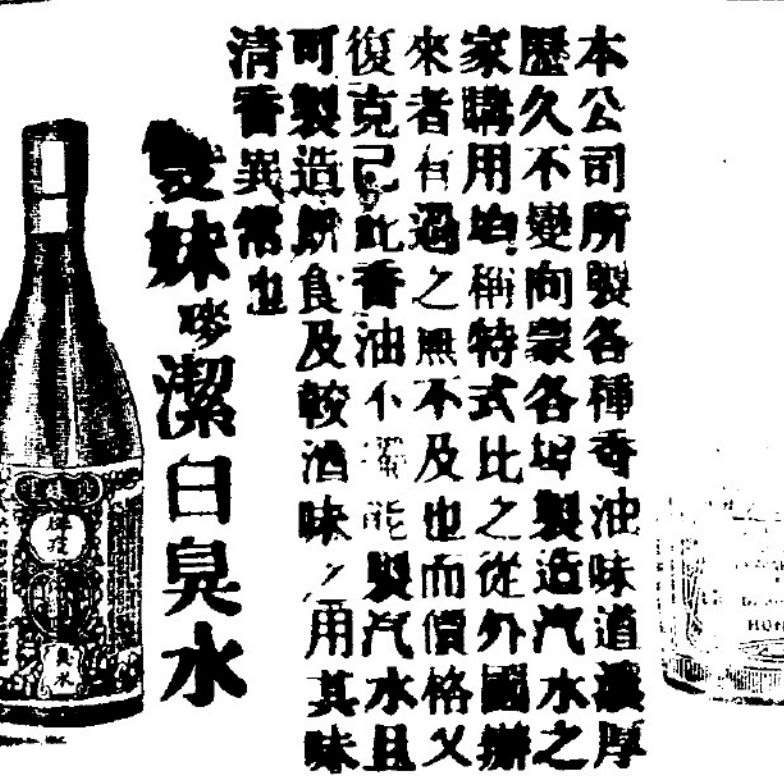 本公司所製各種香油味道濃厚
歷久不變向蒙各埠製造汽水之
家購用均稱特式比之從外國辦
來者有過之無不及也而價格又
復克己此香油不獨能製汽水且
可製造飲食及較酒味之用其味
清香異常也
雙妹嘜潔白臭水
臭水